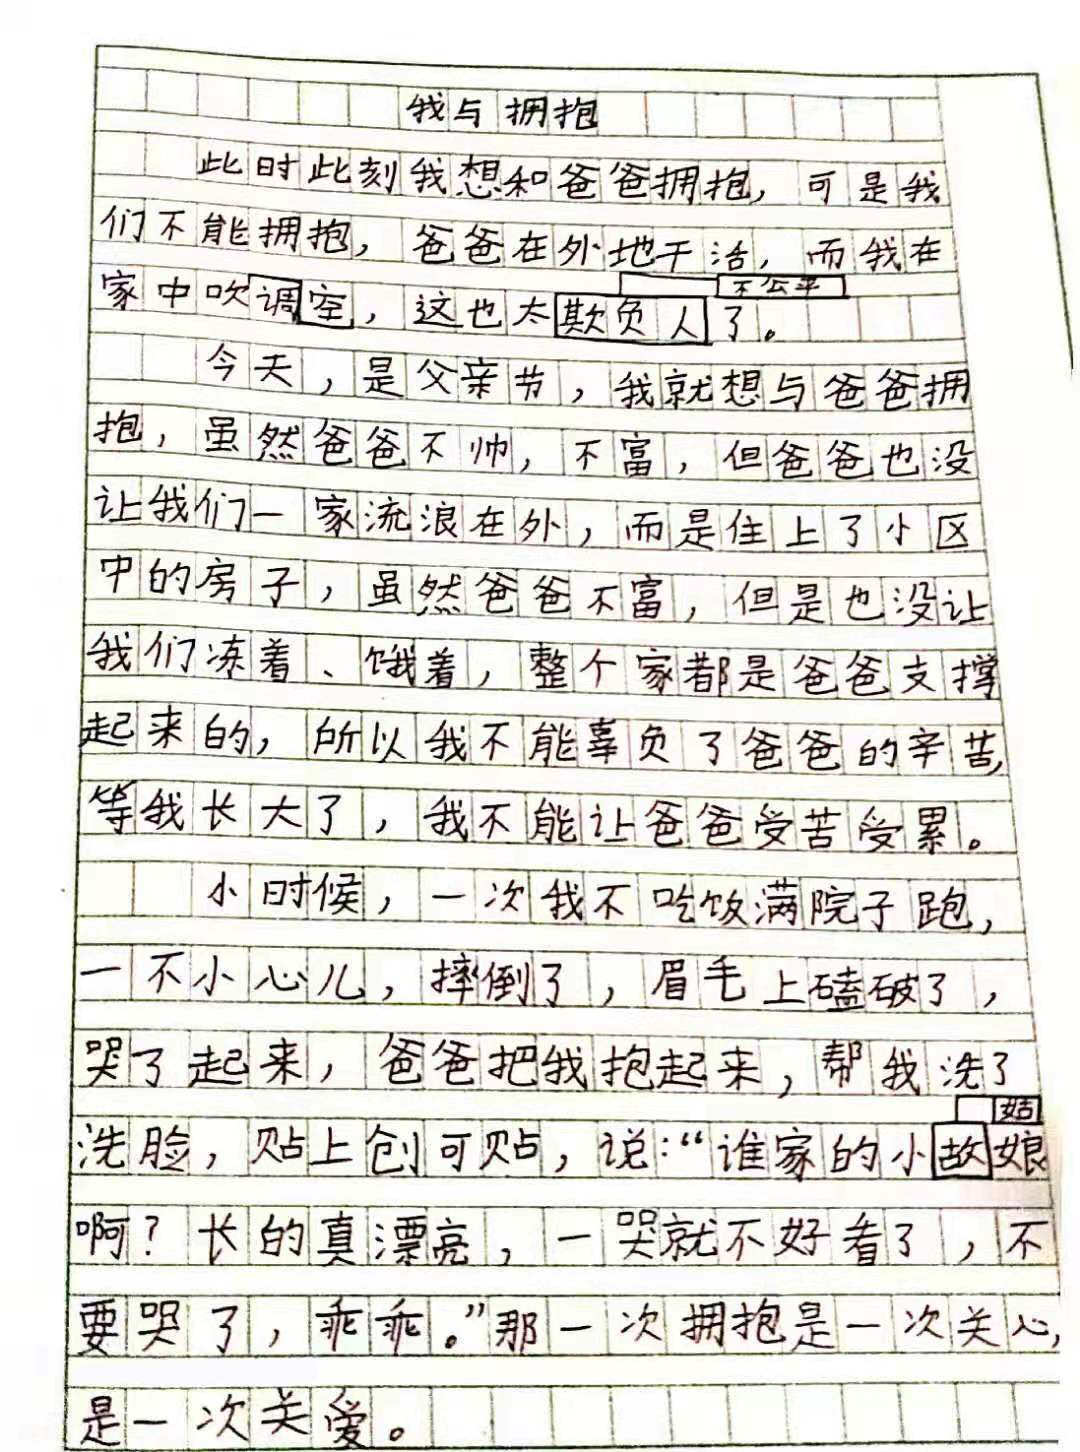 我与拥抱
此时此刻我想和爸爸拥抱，可是我
们不能拥抱，爸爸在外地干活，而我在
不公平
家中吹调空，这也太欺负人了。
今天，是父亲节，我就想与爸爸拥
抱，虽然爸爸不帅，不富，但爸爸也没
让我们一家流浪在外，而是住上了小区
中的房子，虽然爸爸不富，但是也没让
我们冻着、饿着，整个家都是爸爸支撑
起来的，所以我不能辜负了爸爸的辛苦，
等我长大了，我不能让爸爸受苦受累。
小时候，一次我不吃饭满院子跑，
一不小心儿，摔倒了，眉毛上磕破了，
哭了起来，爸爸把我抱起来，帮我洗了
姑
洗脸，贴上创可贴，说：“谁家的小故娘
啊？长的真漂亮，一哭就不好看了，不
要哭了，乖乖。”那一次拥抱是一次关心，
是一次关爱。